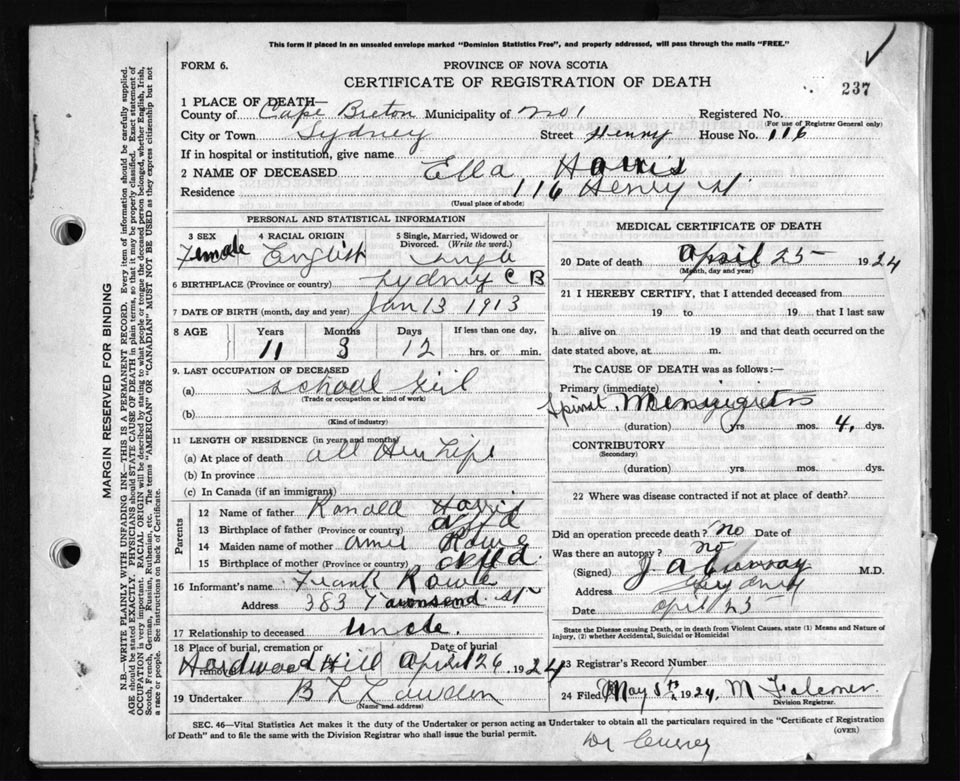 This form if placed in an unsealed envelope marked "Dominion Statistics Free", and properly addressed, will pass through the mails "FREE."
FORM 6.
PROVINCE OF NOVA SCOTIA
CERTIFICATE OF REGISTRATION OF DEATH
237
1 PLACE OF DEATH—
County of Cape Breton Municipality of No 1 Registered No.
(For use of Registrar General only)
City or Town Sydney Street Henry House No. 116
If in hospital or institution, give name
2 NAME OF DECEASED Ella Harris
Residence 116 Henry St.
(Usual place of abode)
PERSONAL AND STATISTICAL INFORMATION
3 SEX Female
4 RACIAL ORIGIN English
5 Single, Married, Widowed or Divorced. (Write the word.) Single
6 BIRTHPLACE (Province or country) Sydney C B
7 DATE OF BIRTH (month, day and year) Jan 13 1913
8 AGE Years Months Days If less than one day,
11 3 12 hrs. or min.
9. LAST OCCUPATION OF DECEASED
(a) School Girl
(Trade or occupation or kind of work)
(b)
(Kind of industry)
11 LENGTH OF RESIDENCE (in years and months)
(a) At place of death all Her Life
(b) In province
(c) In Canada (if an immigrant)
Parents
12 Name of father Ronald Harris
13 Birthplace of father (Province or country)
14 Maiden name of mother Rowe
15 Birthplace of mother (Province or country)
16 Informant's name Frank Rowe
Address 383 Townsend St
17 Relationship to deceased Uncle.
18 Place of burial, cremation or removal Date of burial
Hardwood Hill April 26, 1924
19 Undertaker B L
(Name and address)
MEDICAL CERTIFICATE OF DEATH
20 Date of death April 25 1924
(Month, day and year)
21 I HEREBY CERTIFY, that I attended deceased from
19 to 19 that I last saw
h alive on 19 and that death occurred on the
date stated above, at m.
The CAUSE OF DEATH was as follows:—
Primary (immediate)
Spinal Meningitis
(duration) yrs. mos. 4 dys.
CONTRIBUTORY
(Secondary)
(duration) yrs. mos. dys.
22 Where was disease contracted if not at place of death?
Did an operation precede death? no Date of
Was there an autopsy? no
(Signed) J A M.D.
Address Sydney
Date April 25
State the Disease causing Death, or in death from Violent Causes, state (1) Means and Nature of
Injury, (2) whether Accidental, Suicidal or Homicidal
23 Registrar's Record Number
24 Filed May 5th 1924, M Falconer
Division Registrar.
SEC. 46—Vital Statistics Act makes it the duty of the Undertaker or person acting as Undertaker to obtain all the particulars required in the "Certificate of Registration
of Death" and to file the same with the Division Registrar who shall issue the burial permit.
(OVER)
Dr
MARGIN RESERVED FOR BINDING
N.B.—WRITE PLAINLY WITH UNFADING INK—THIS IS A PERMANENT RECORD. Every item of information should be carefully supplied.
AGE should be stated EXACTLY. PHYSICIANS should STATE CAUSE OF DEATH in plain terms, so that it may be properly classified. Exact statement of
OCCUPATION is very important. RACIAL ORIGIN will be described by stating to what people or tongue the deceased person belonged, whether English, Irish,
Scotch, French, German, Russian, Ruthenian, etc. The terms "AMERICAN" OR "CANADIAN" MUST NOT BE USED as they express citizenship but not
a race or people. See instructions on back of Certificate.